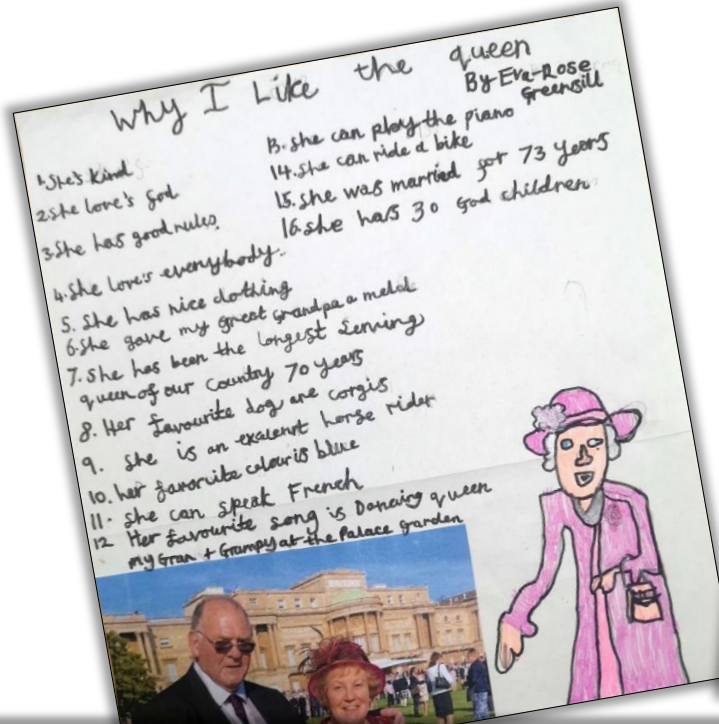 Why I Like the queen
By Eva-Rose
Greensill
1. She's kind
2. she love's god
3. She has good rules
4. she love's everybody.
5. she has nice clothing
6. she gave my great grandpa a medal
7. she has been the longest serving
queen of our country 70 years
8. Her favourite dog are corgis
9. she is an exalennt horse rider
10. her favoruite colour is blue
11. she can speak French
12 Her favourite song is Dancing queen
13. she can play the piano
14. she can ride a bike
15. she was married for 73 years
16. she has 30 god children
my Gran + Grampy at the Palace garden